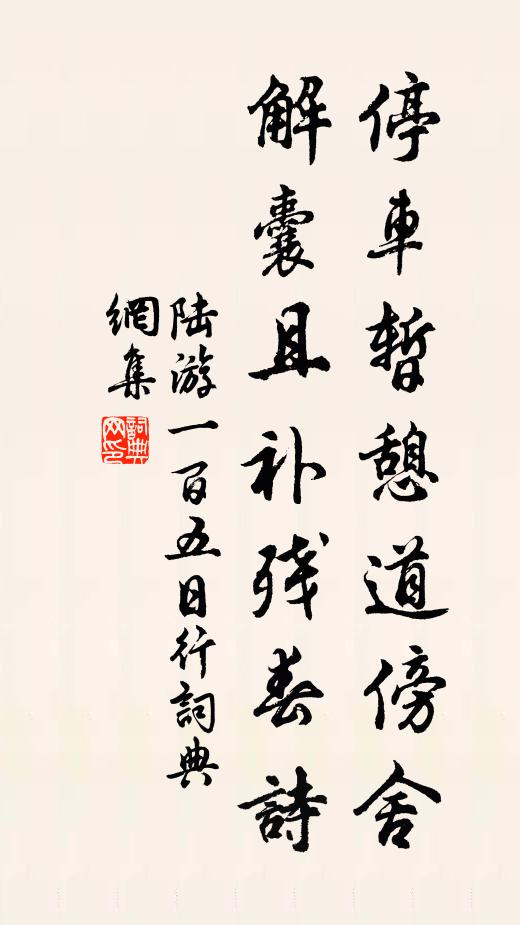 停車暫憩道傍舍
解囊且补残春詩
陆游一百五日行詞典
網集
詞典
网印